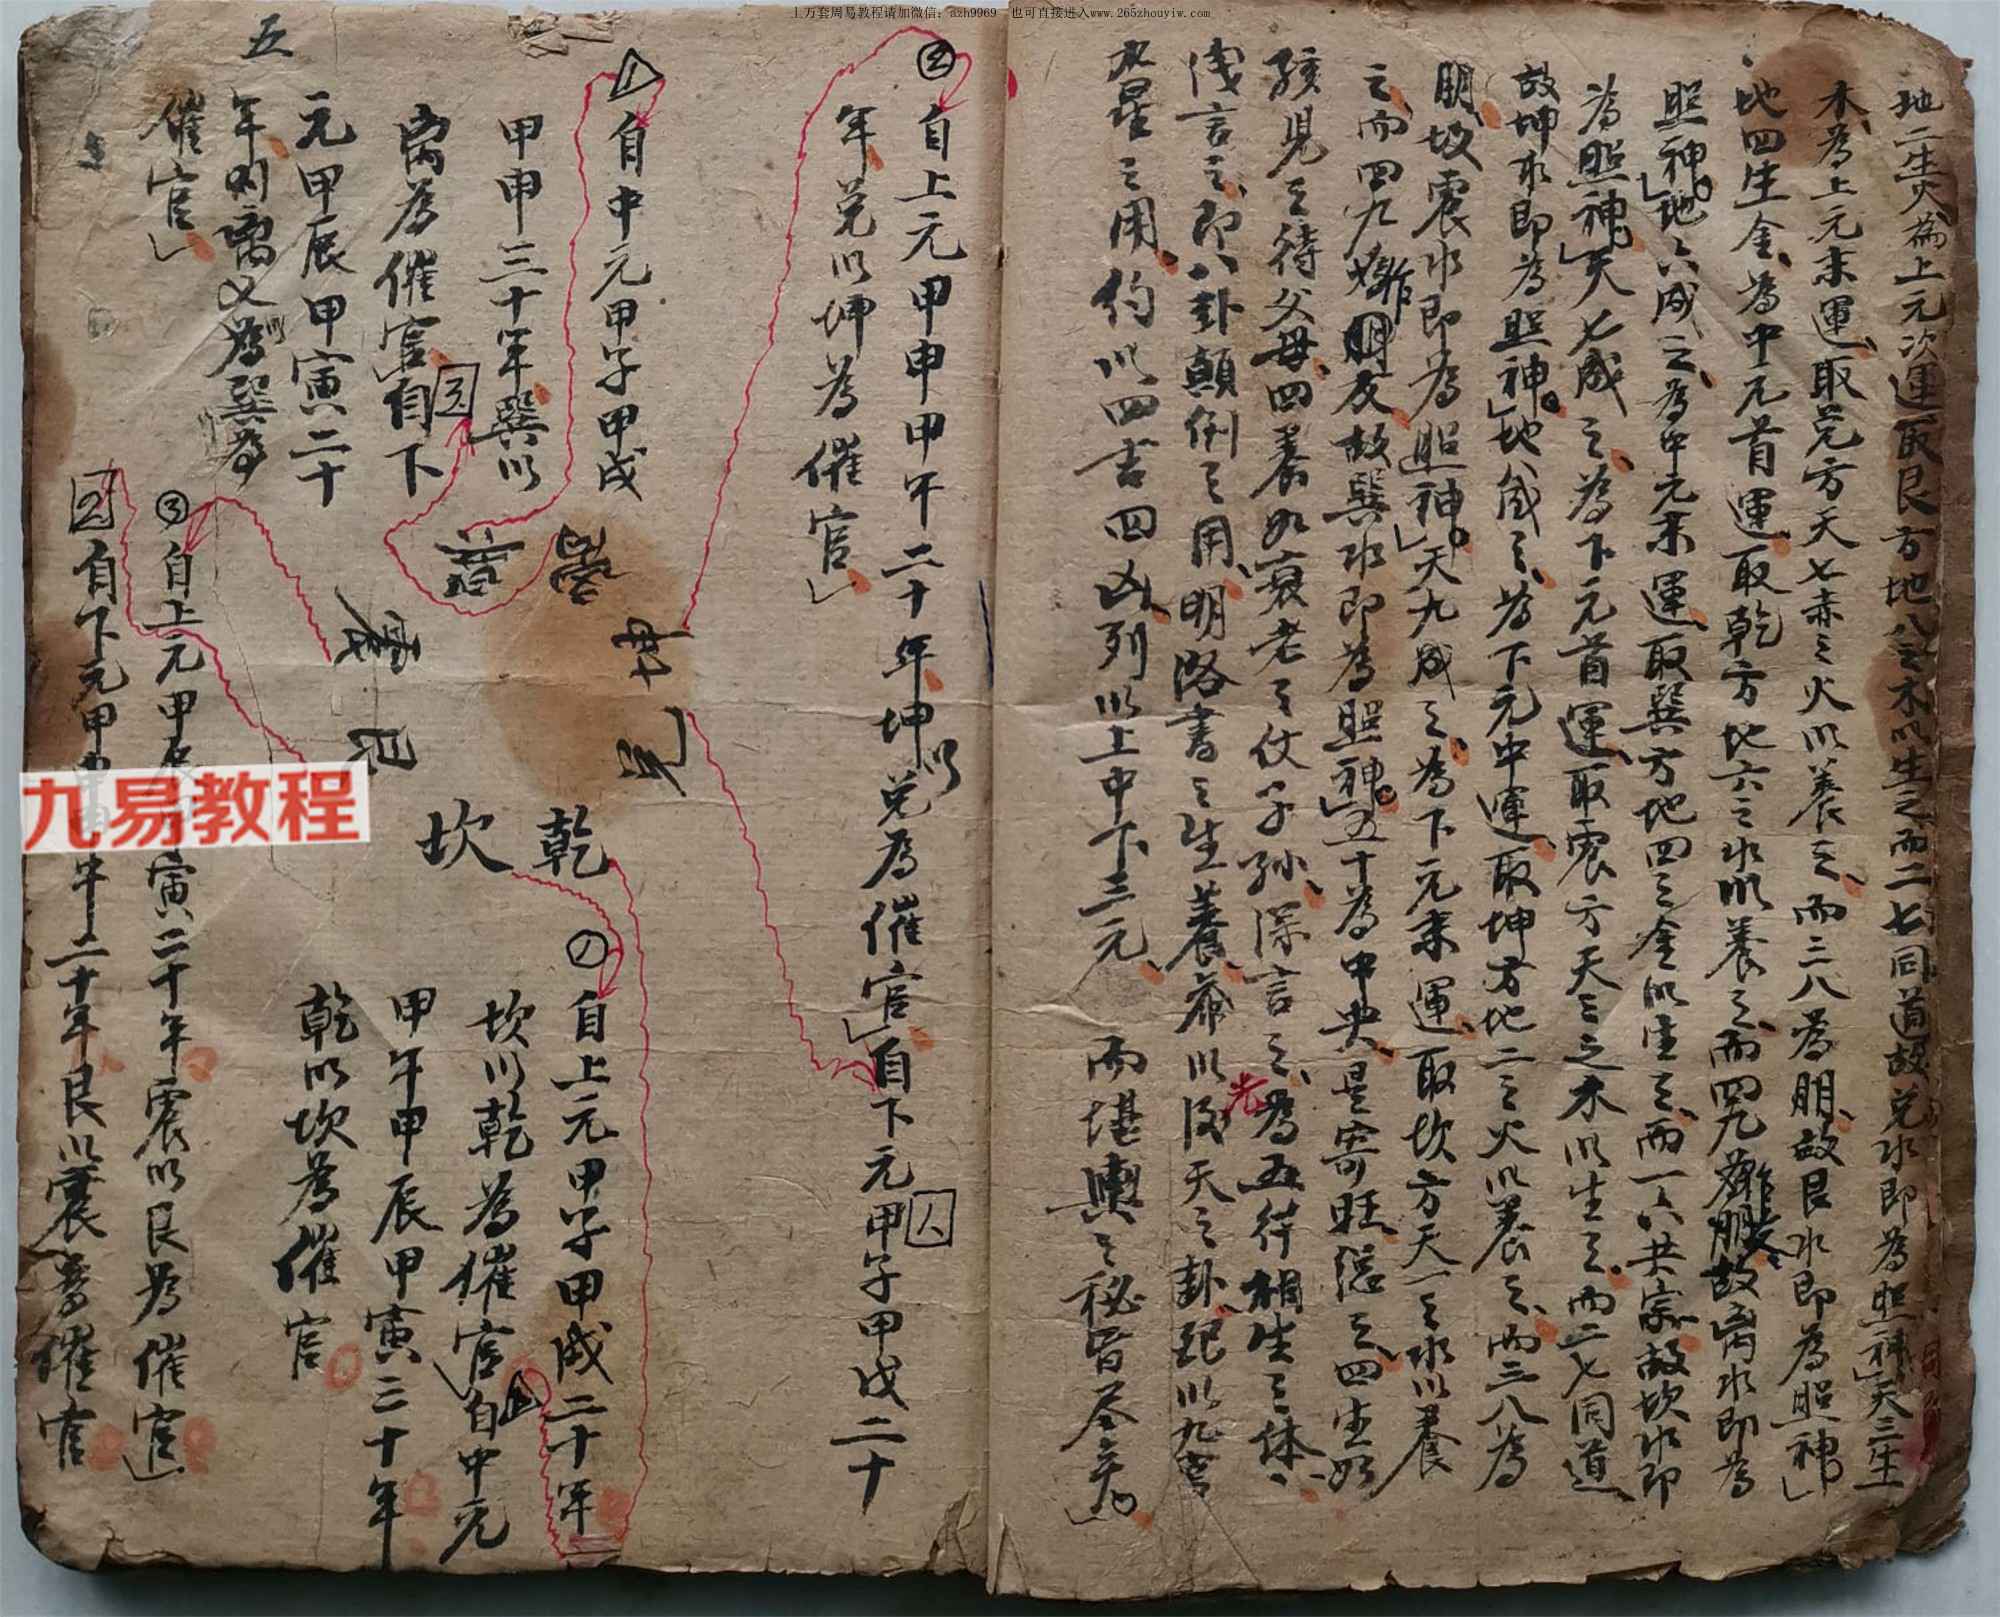 上万套周易教程请加微信：azh9969　也可直接进入www.265zhouyiw.com
地二生火為上元次運取艮方地八之木以生之而二七同道故兌水即為照神」天三生
木為上元末運、取兌方天七赤之火以養之、而三八為朋、故艮水即為照神」
地四生金、為中元首運、取乾方地六之水以養之、而四九為朋故离水即為
照神」地六成之、為中元末運、取巽方地四之金以生之、而一六共宗故坎水即
為照神」天七成之、為下元首運、取震方天三之木以生之、而二七同道、
故坤水即為照神」地八成之、為下元中運、取坤方地二之火以養之、而三八為
朋、故震水即為照神」天九成之、為下元末運、取坎方天一之水以養
之、而四九為朋友、故巽水即為照神」五十為中央、是寄旺、總之、四生如
孩兒之待父母、四養如衰老之仗子孫、深言之、為五行相生之体、
淺言之、即八卦顛倒之用、明洛書之生養 以後天之卦、配以九宮
九星之用、約以四吉四凶、列以上中下三元、而堪輿之秘旨尽矣」
② 自上元甲申甲午二十年坤以兌為催官」自下元甲子甲戌二十
年、兌以坤為催官」
自中元甲子甲戌
甲申三十年巽以
离為催官」自下
元甲辰甲寅二十
年則离又以為巽為
催官」
五
离
坤
兌
乾
坎
艮
震
自上元甲子甲戌二十年
坎以乾為催官」自中元
甲午甲辰甲寅三十年
乾以坎為催官
③ 自上元甲 寅二十年震以艮為催官」
自下元甲 午二十年艮以震為催官
九易教程